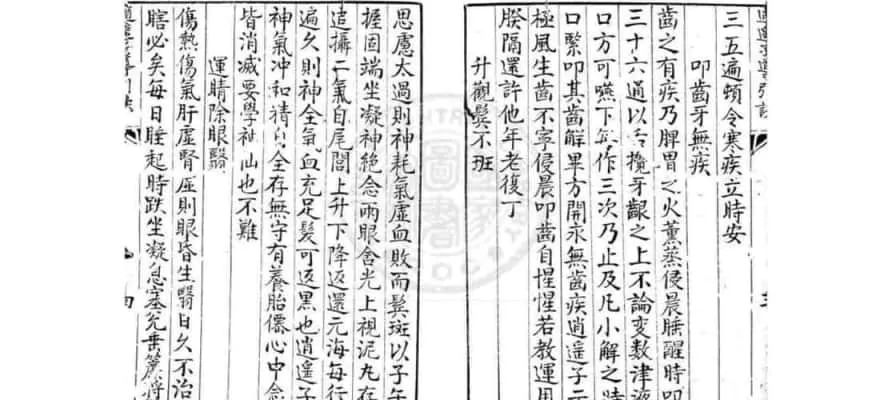 三五遍頓令寒疾立時安
叩齒牙無疾
齒之有疾乃脾胃之火薰蒸侵晨睡醒時叩
三十六通以舌攪牙齦之上不論變數津液
口方可嚥下每作三次乃止及凡小解之時
口緊叩其齒解畢方開永無齒疾逍遥子
極風生齒不寧侵晨叩齒自惺惺若教運用
朕隔還許他年老復丁
升觀鬓不班
思慮太過則神耗氣虚血敗而鬓斑以子午
握固端坐凝神絶念兩眼含光上視泥丸存
追攝二氣自尾閭上升下降返還元海每行
遍久則神全氣血充足髮可返黑也逍遥子
神氣冲和精全存無守有養胎僊心中念
皆消滅要學神仙也不難
運睛除眼翳
傷熱傷氣肝虚腎虚則眼昏生翳日久不治
瞎必矣每日睡起時趺坐凝息塞兑垂簾將